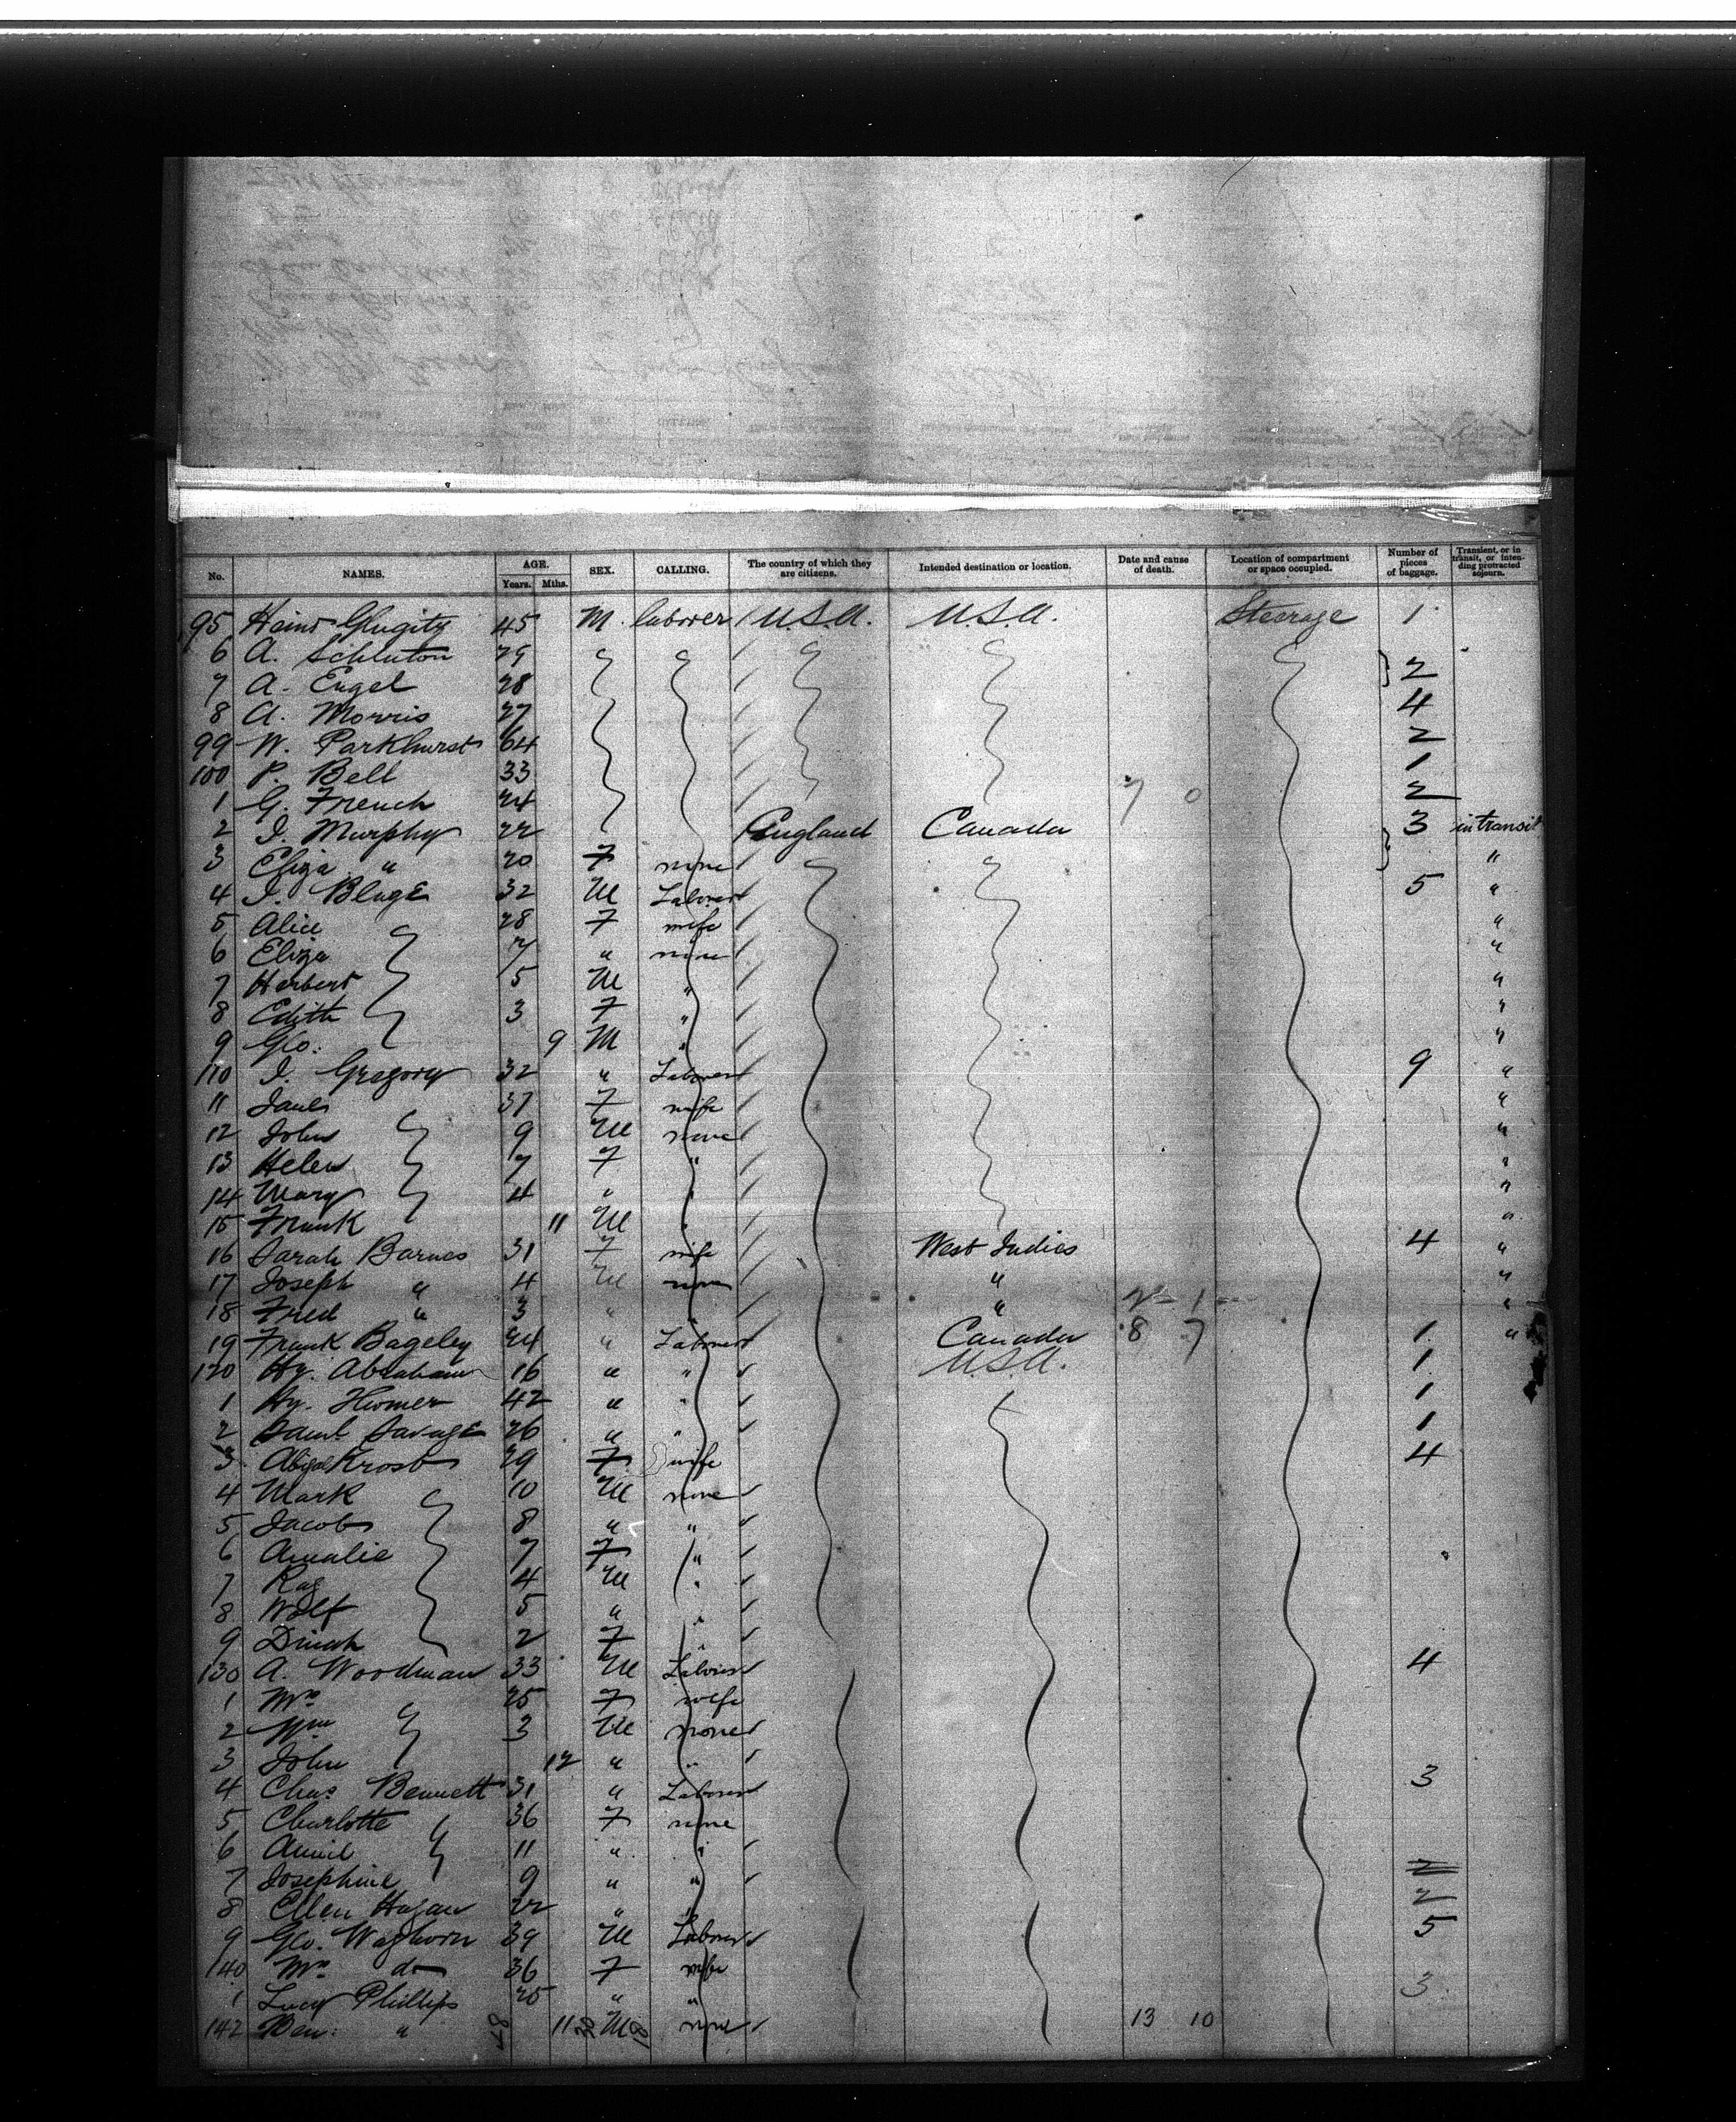 No. NAMES. AGE. Years. Mths. SEX. CALLING. The country of which they are citizens. Intended destination or location. Date and cause of death. Location of compartment or space occupied. Number of pieces of baggage. Transient, or in transit, or intending protracted sojourn.
95 45 M. laborer U.S.A. U.S.A. Steerage 1
6 A. Schluton 29
7 A. Engel 28 2
8 A. Morris 27 4
99 W. Parkhurst 64 2
100 P. Bell 33 1
1 G. French 24 7 0 2
2 J. Murphy 22 England Canada 3 in transit
3 Eliza " 20 F none "
4 J. 32 M Laborer 5 "
5 Alice 28 F wife "
6 Eliza 7 " none "
7 Herbert 5 M " "
8 Edith 3 F " "
9 Geo: 9 M " "
110 J. Gregory 32 " Laborer 9 "
11 37 F wife "
12 John 9 M none "
13 Helen 7 F " "
14 Mary 4 " " "
15 Frank 11 M " "
16 Sarah Barnes 31 F wife West Indies 4 "
17 Joseph " 4 M none " "
18 Fred " 3 " " 2 1 "
19 Frank Bageley 24 " Laborer Canada 8 7 1 "
120 Hy. Abraham 16 " " U.S.A. 1
1 Hy. 42 " " 1
2 Saml. Savage 26 " " 1
3 29 F wife 4
4 Mark 10 M none
5 Jacob 8 " "
6 Amalie 7 F "
7 4 M "
8 Wolf 5 " "
9 Dinah 2 F
130 A. Woodman 33 M Laborer 4
1 Mrs 25 F wife
2 Wm 3 M none
3 John 12 " "
4 Chas Bennett 31 " Laborer 3
5 Charlotte 36 F none
6 Annie 11 " "
7 Josephine 9 " " 2
8 Ellen Hogan 22 " " 2
9 Geo. Waghorn 39 M Laborer 5
140 Mrs do 36 F wife
1 Lucy Phillips 25 " " 3
142 Ben: " 11 M none 13 10